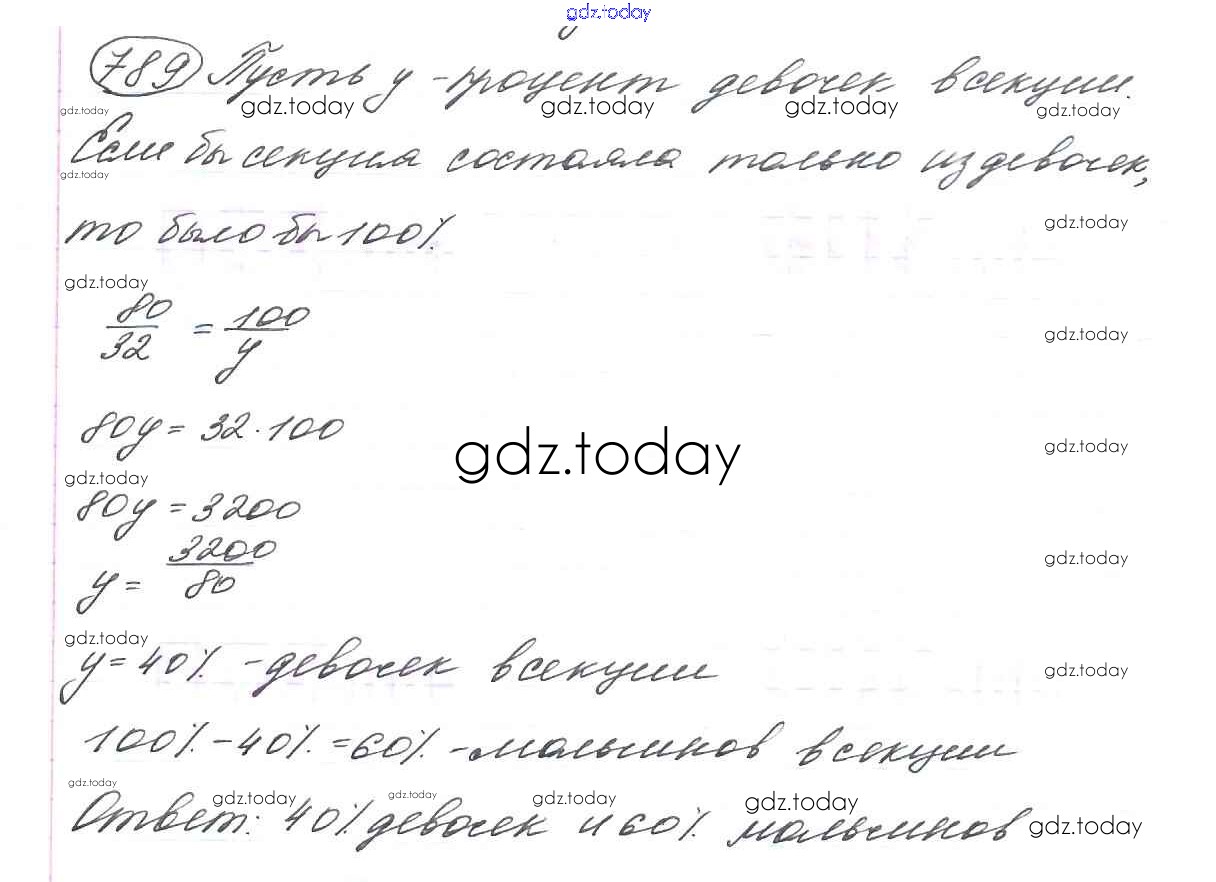 gdz.today
789 Пусть y - процент девочек в секции.
gdz.today gdz.today gdz.today gdz.today gdz.today
Если бы секция состояла только из девочек,
gdz.today
то было бы 100%.
gdz.today
gdz.today
80/32 = 100/y
gdz.today
80y = 32 · 100
gdz.today
gdz.today
gdz.today
80y = 3200
y = 3200/80
gdz.today
gdz.today
y = 40% - девочек в секции
gdz.today
100% - 40% = 60% - мальчиков в секции
gdz.today gdz.today gdz.today gdz.today gdz.today
Ответ: 40% девочек и 60% мальчиков
gdz.today